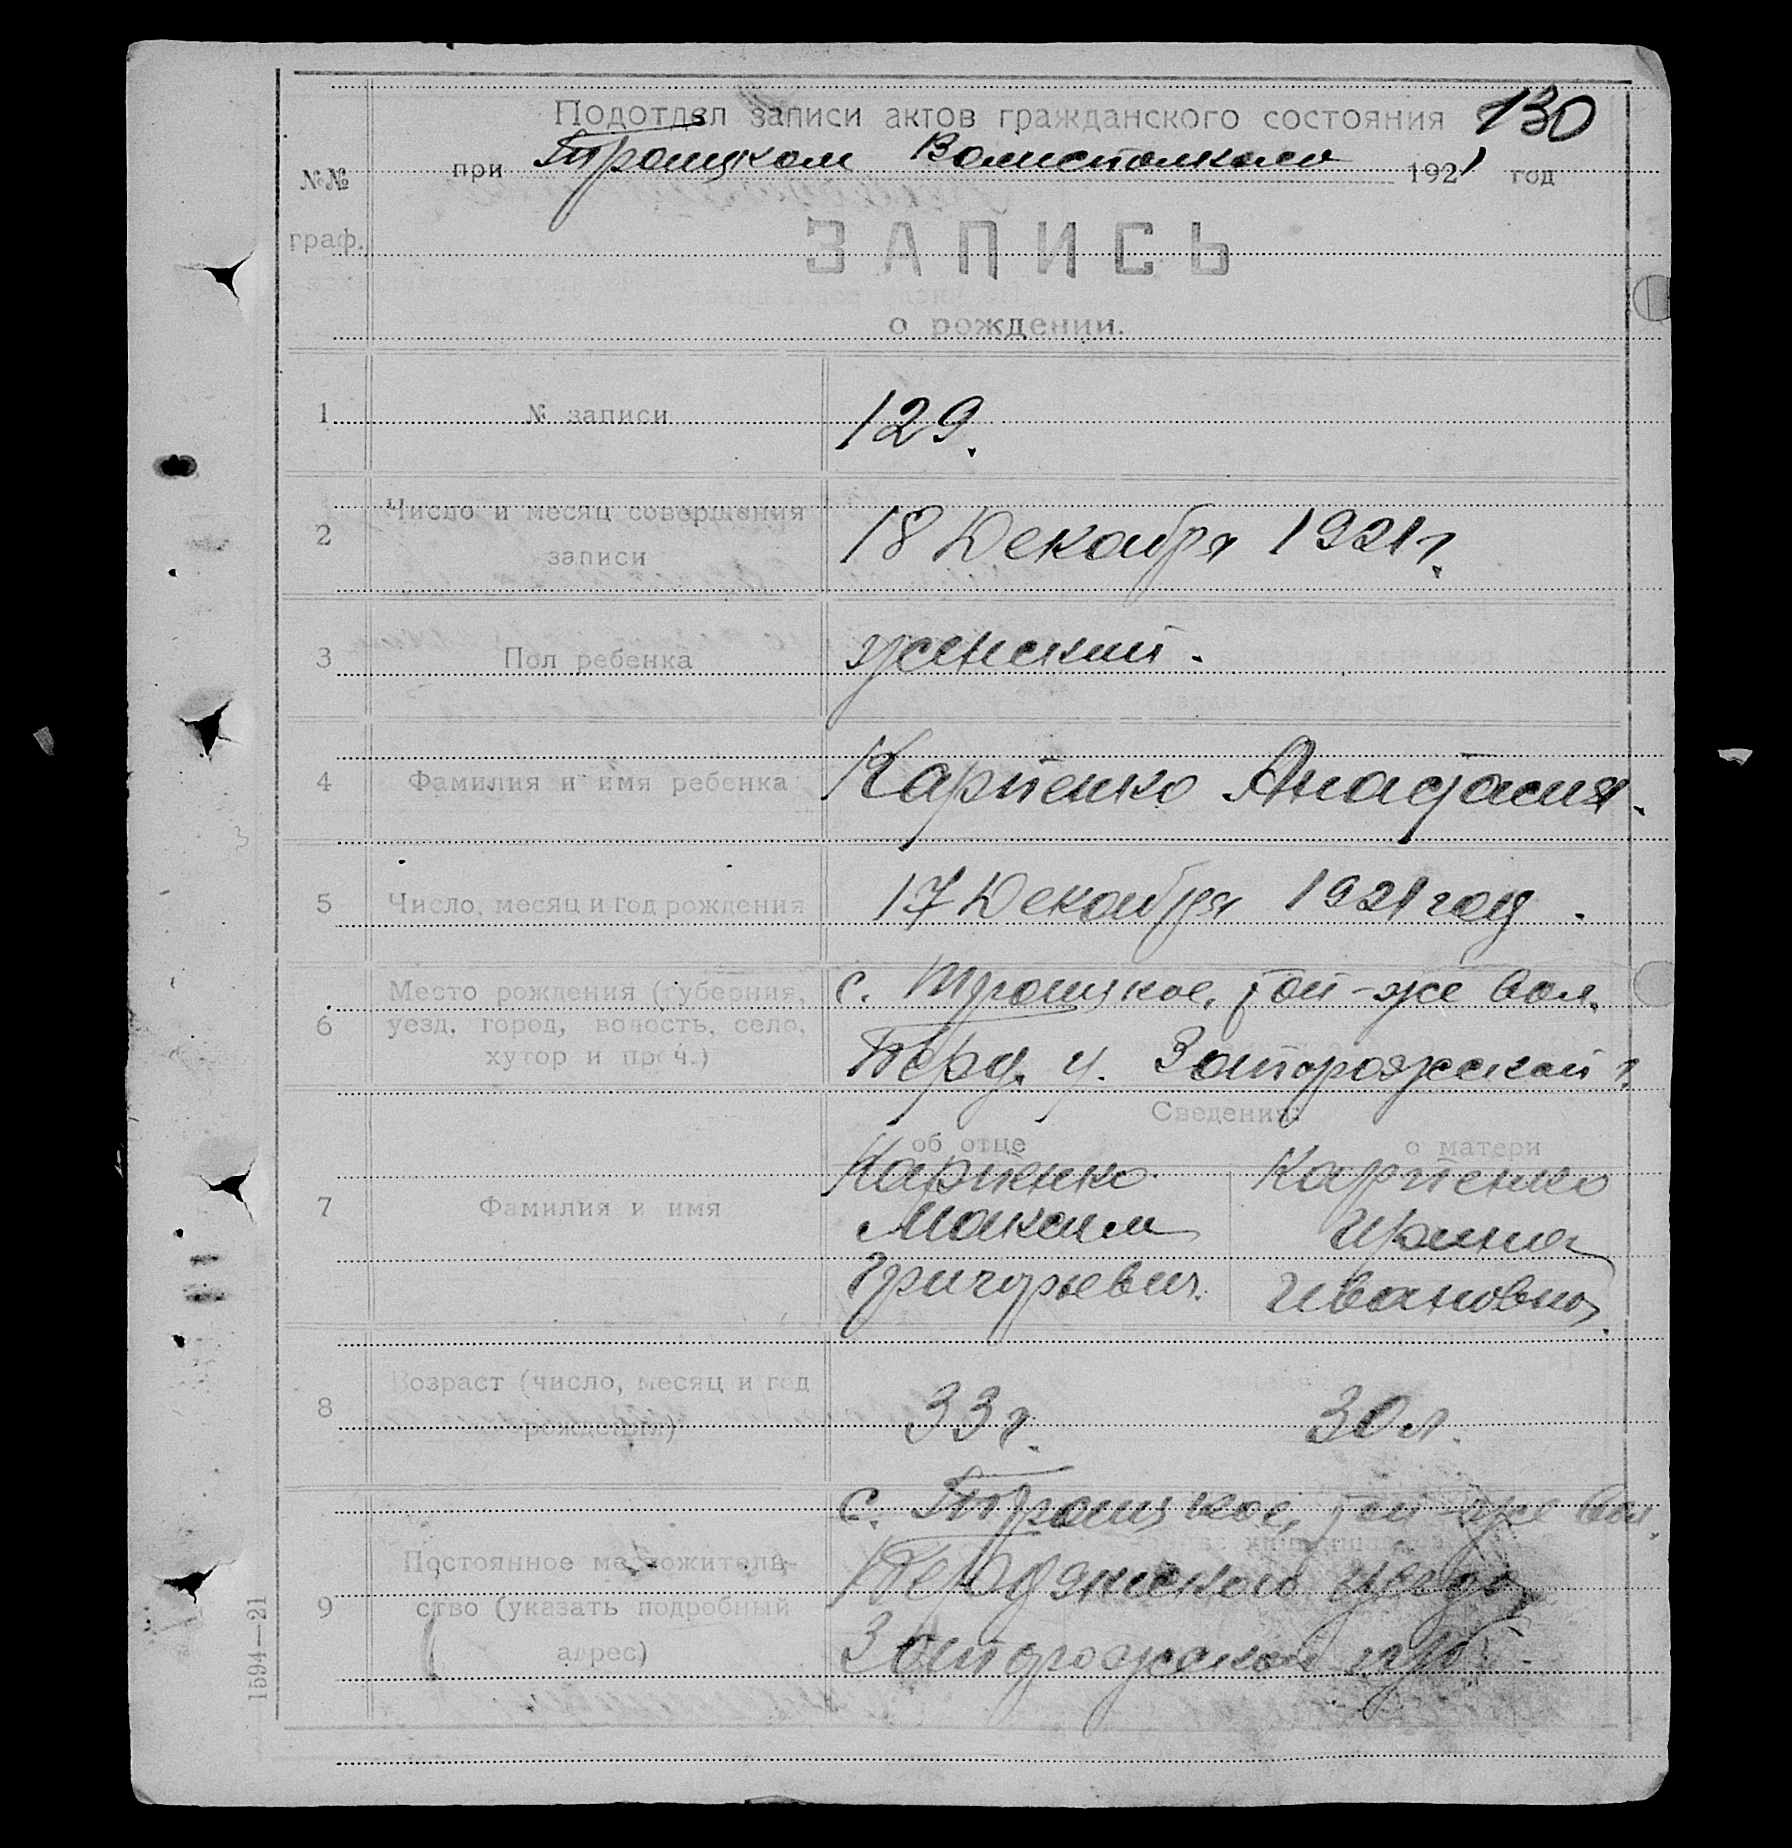 Подотдел записи актов гражданского состояния 130
при Троицком Волисполкоме 1921 год
№№
граф.
ЗАПИСЬ
о рождении.
1 № записи 129.
2 Число и месяц совершения
записи 18 Декабря 1921 г.
3 Пол ребенка женский.
4 Фамилия и имя ребенка Карпенко Анастасия.
5 Число, месяц и год рождения 17 Декабря 1921 год.
6 Место рождения (губерния,
уезд, город, волость, село,
хутор и проч.)
с. Троицкое, той-же вол.
Берд. у. Запорожской г.
Сведения:
об отце о матери
7 Фамилия и имя
Карпенко Карпенко
Максим Ирина
Григорьевич. Ивановна.
8 Возраст (число, месяц и год
рождения) 33 г. 30 л.
9 Постоянное местожитель-
ство (указать подробный
адрес)
с. Троицкое, той-же вол.
Бердянского уезда,
Запорожской губ.
1594—21